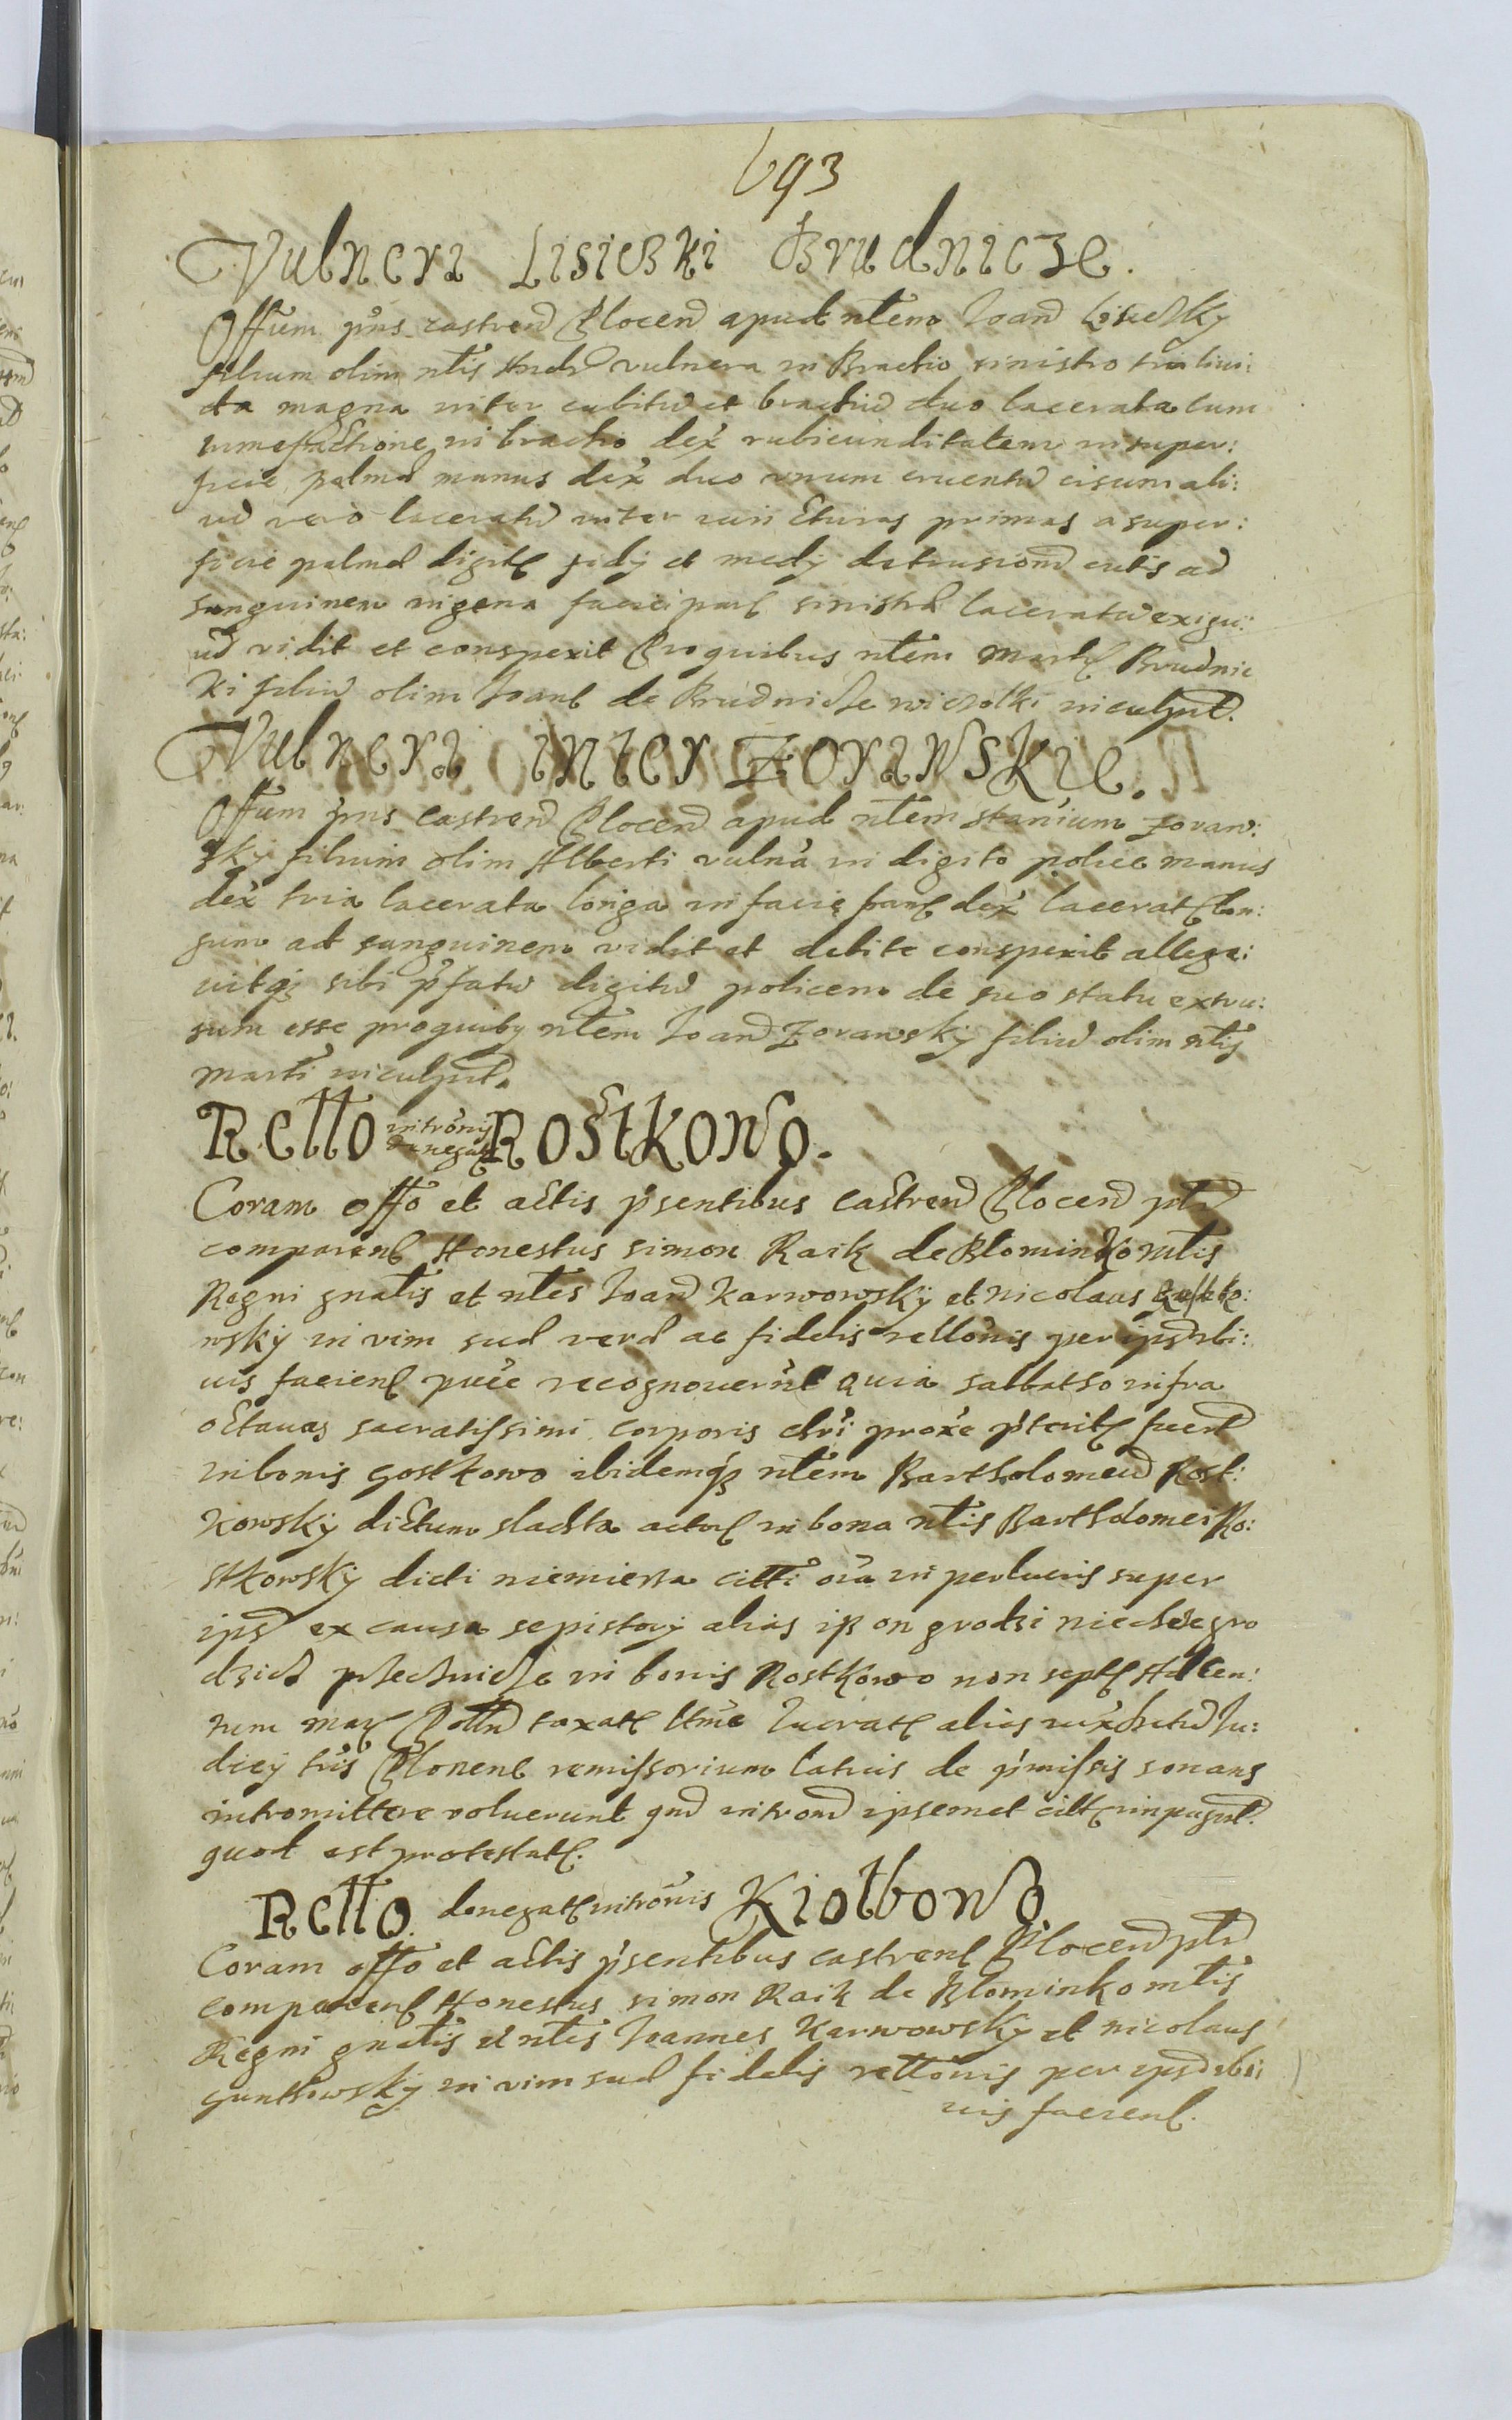 693
Vulnera Lisieski Brudnicze.
Offum pns castren Plocen apud nlem Joan Lisiesky
filium olim nlis Andr vulnera in Brachio sinistro tria livi:
da magna inter cubitu et brachiu duo lacerata cum
tumefactione in brachio dex rubicunditatem in super:
ficie palma manus dex duo unum cruentu cisum ali:
ud vero laceratu inter iuncturas primas a super:
ficie palma digit et medy detrusione cutis ad
sanguinem in gena faciei part sinistra laceratu exigu:
ud vidit et conspexit Proquibus nlem Mart Brudnic
ki filiu olim Joane de Brudnicze wiesotki inculpat.
Vulnera inter Zorawskie.
Offum pns Castren Plocen apud nlem Stanium Zoraw:
sky filium olim Alberti vulna in digito police manus
dex tria lacerata longa in facie part dex lacerat lon:
gum ad sanguinem vidit et debite conspexit allega:
vitq sibi pfatu digitu policem de suo statu extru:
sum esse proquiby nlem Joan Zorawsky filiu olim nlis
Marti inculpat.
Rello intronis denegat Rostkowo.
Coram offo et actis psentibus castren Plocen ptr
comparens Honestus Simon Raik de Blominko mlis
Regni gnalis et nles Joan Karwowsky et Nicolaus
wsky in vim sua vera ac fidelis rellonis per ips sbi:
vis faciens puce recognoverut Quia Sabbatho infra
octavas sacratissimi corporis chri proxe pterit fuert
in bonis Gostkowo ibidemq nlem Bartholomeu Rost:
kowsky dictum slachta actore in bona nlis Bartholomei Ro:
stkowsky dicti niemiera citti oia in perlucris super
ips ex causa sepistory alias iz on grodzi niechcze gro
dzich przechnicze in bonis Rostkowo non sept Ad Cen:
tum mar Polln taxat ltme lucrat alias Ju:
dicy tris Plonens remissorium latius de pmissis sonans
intromittere voluerunt qua introm ipsemet citt inpugnt.
quod est protestat.
Rello. denegat intronis Kiolbowo
Coram offo et actis psentibus castrens Plocen ptr
comparens Honestus Simon Raik de Blominko mlis
Regni gnalis et nles Joannes Karwowsky et Nicolaus
Gunthowsky in vim sua fidelis rellonis per ips sbi:
vis faciens.